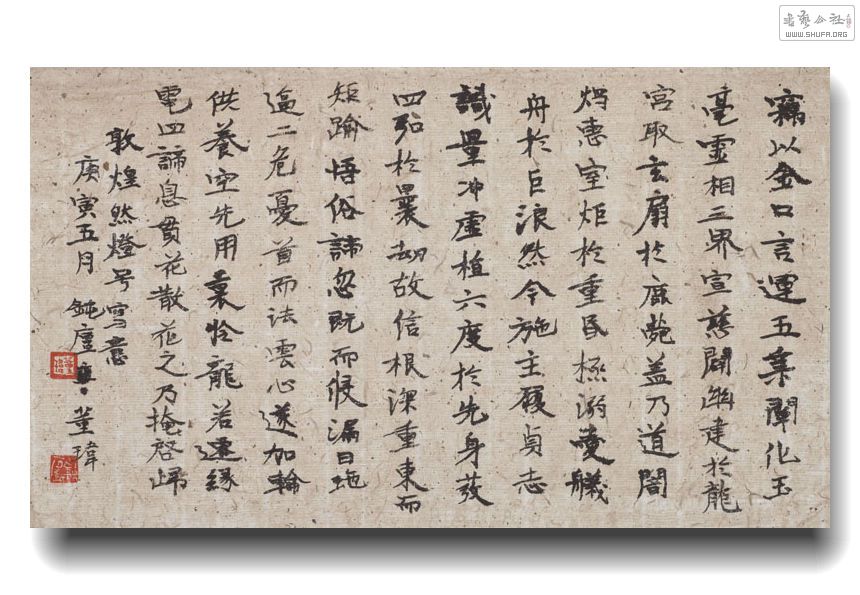 竊以金口言運五集闡化玉
毫靈相三界宣慈闢幽建於龍
宮取玄扇於鹿苑蓋乃道闇
爥惠室炬於重昏極溺愛艤
舟於巨浪然今施主履貞志
識量冲虛植六度於先身發
四弘於曩劫故信根深重東而
矩踰悟俗諦忽既而候漏日地
逼二危憂首而法雲心遂加輪
供養空先用裏怜龍若速緣
電四諦息貫花散花之乃掩啓歸
敦煌然燈号寫意
庚寅五月 鈍廬 董瑋
書藝公社
WWW.SHUFA.ORG